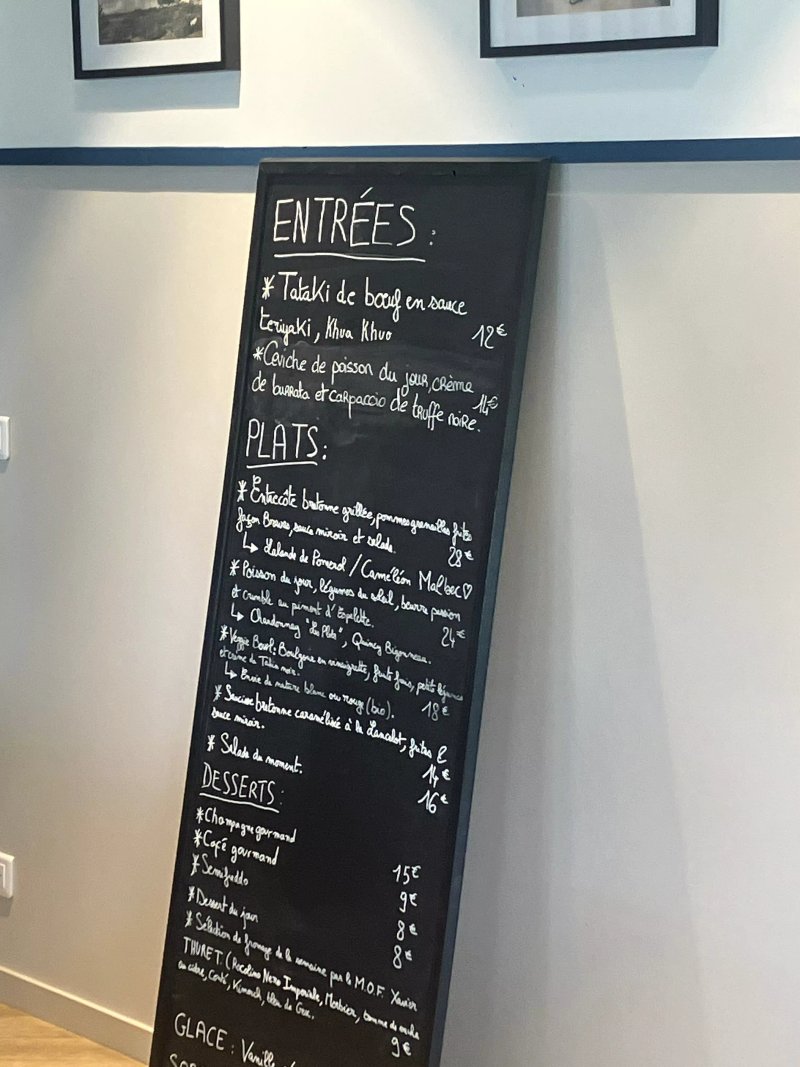 ENTRÉES :
* Tataki de bœuf en sauce
teriyaki, Khua Khuo 12€
* Ceviche de poisson du jour, crème
de burrata et carpaccio de truffe noire. 14€
PLATS :
* Entrecôte bretonne grillée, pommes grenailles frites
façon Bravas, sauce miroir et salade. 28€
↳ Lalande de Pomerol / Caméléon Malbec ♡
* Poisson du jour, légumes du soleil, beurre passion
et crumble au piment d'Espelette. 24€
↳ Chardonnay "Les Plots", Quincy Bigonneau.
* Veggie Bowl : Boulgour en vinaigrette, fruits frais, petits légumes
et crème de Tahin noir. 18€
↳ Envie de nature blanc ou rouge (bio).
* Saucisse bretonne caramélisée à la Lancelot, frites &
sauce miroir. 14€
* Salade du moment. 16€
DESSERTS :
* Champagne gourmand 15€
* Café gourmand 9€
* Semifreddo 8€
* Dessert du jour 8€
* Sélection de fromage de la semaine par le M.O.F. Xavier
THURET. (Rocolino Nero Imperiale, Morbier, tomme de
au cidre, Comté, bleu de Gex. 9€
GLACE : Vanille